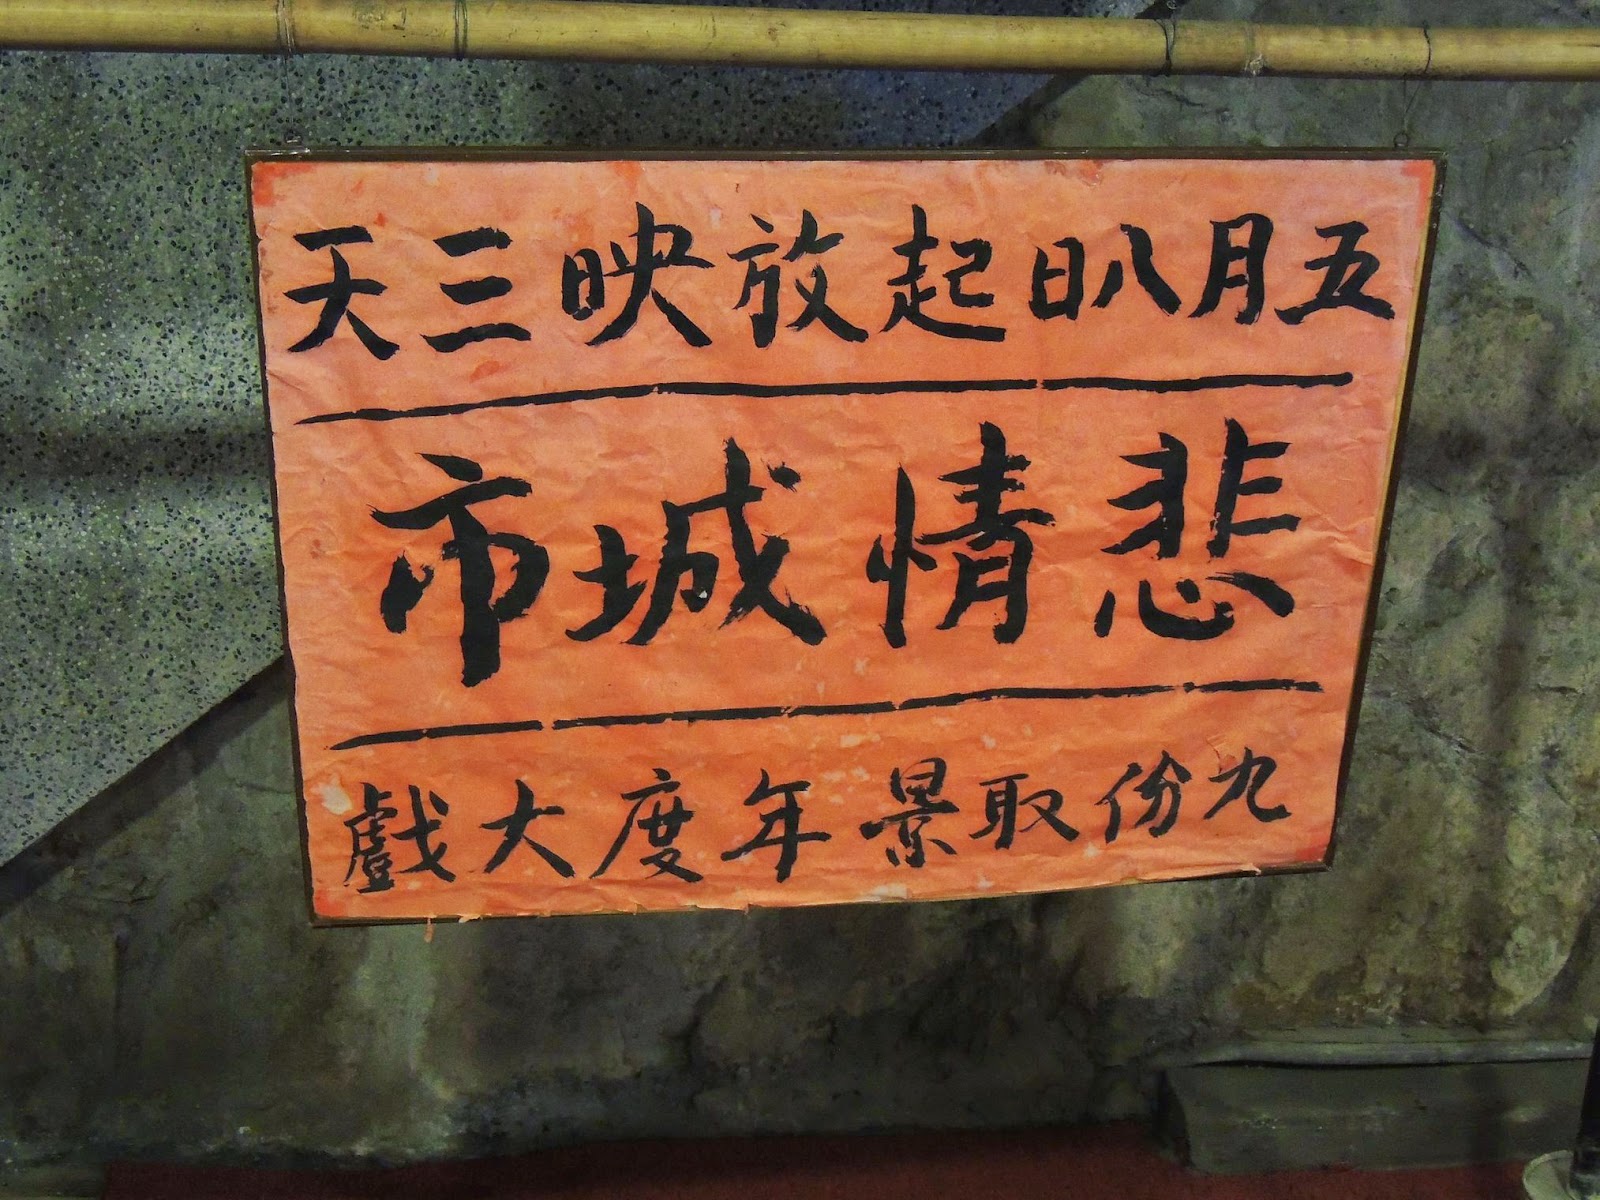 五月八日起放映三天
悲情城市
九份取景年度大戲